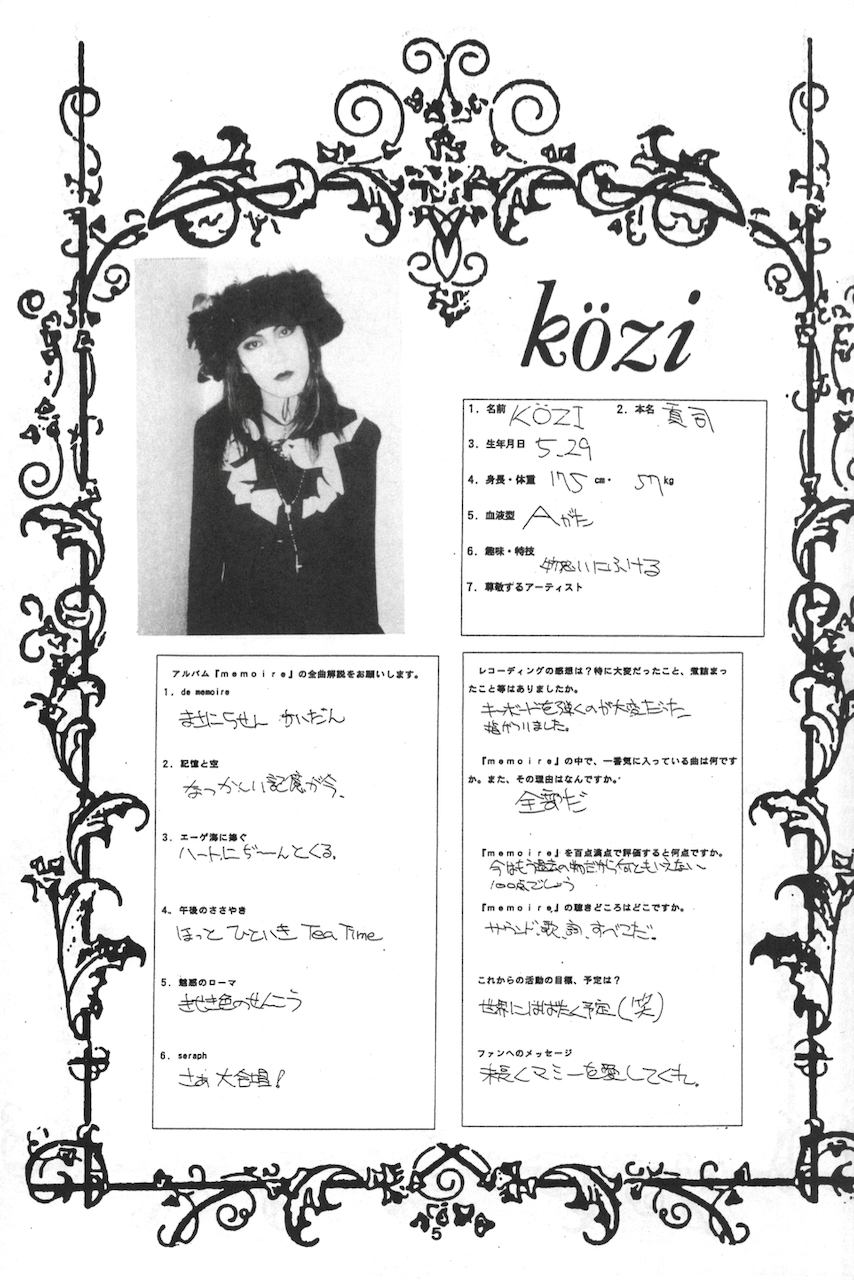 közi
1. 名前 KÖZI 2. 本名
3. 生年月日 5.29
4. 身長・体重 175 cm・ 57 kg
5. 血液型 Aがた
6. 趣味・特技
物思いにふける
7. 尊敬するアーティスト
アルバム『memoire』の全曲解説をお願いします。
1. de memoire
まさにらせん かいだん
2. 記憶と空
なつかしい記憶が今、
3. エーゲ海に捧ぐ
ハートにぢ〜んとくる。
4. 午後のささやき
ほっと ひといき Tea Time
5. 魅惑のローマ
きせき色のせんこう
6. seraph
さぁ 大合唱!
レコーディングの感想は?特に大変だったこと、煮詰まっ
たこと等はありましたか。
キーボードを弾くのが大変だった
指がつりました。
『memoire』の中で、一番気に入っている曲は何です
か。また、その理由はなんですか。
全部だ
『memoire』を百点満点で評価すると何点ですか。
今はもう過去の物だから何ともいえない
100点でしょう
『memoire』の聴きどころはどこですか。
サウンド、歌、詞、すべてだ。
これからの活動の目標、予定は?
世界にはばたく予定(笑)
ファンへのメッセージ
末長くマミーを愛してくれ。
5